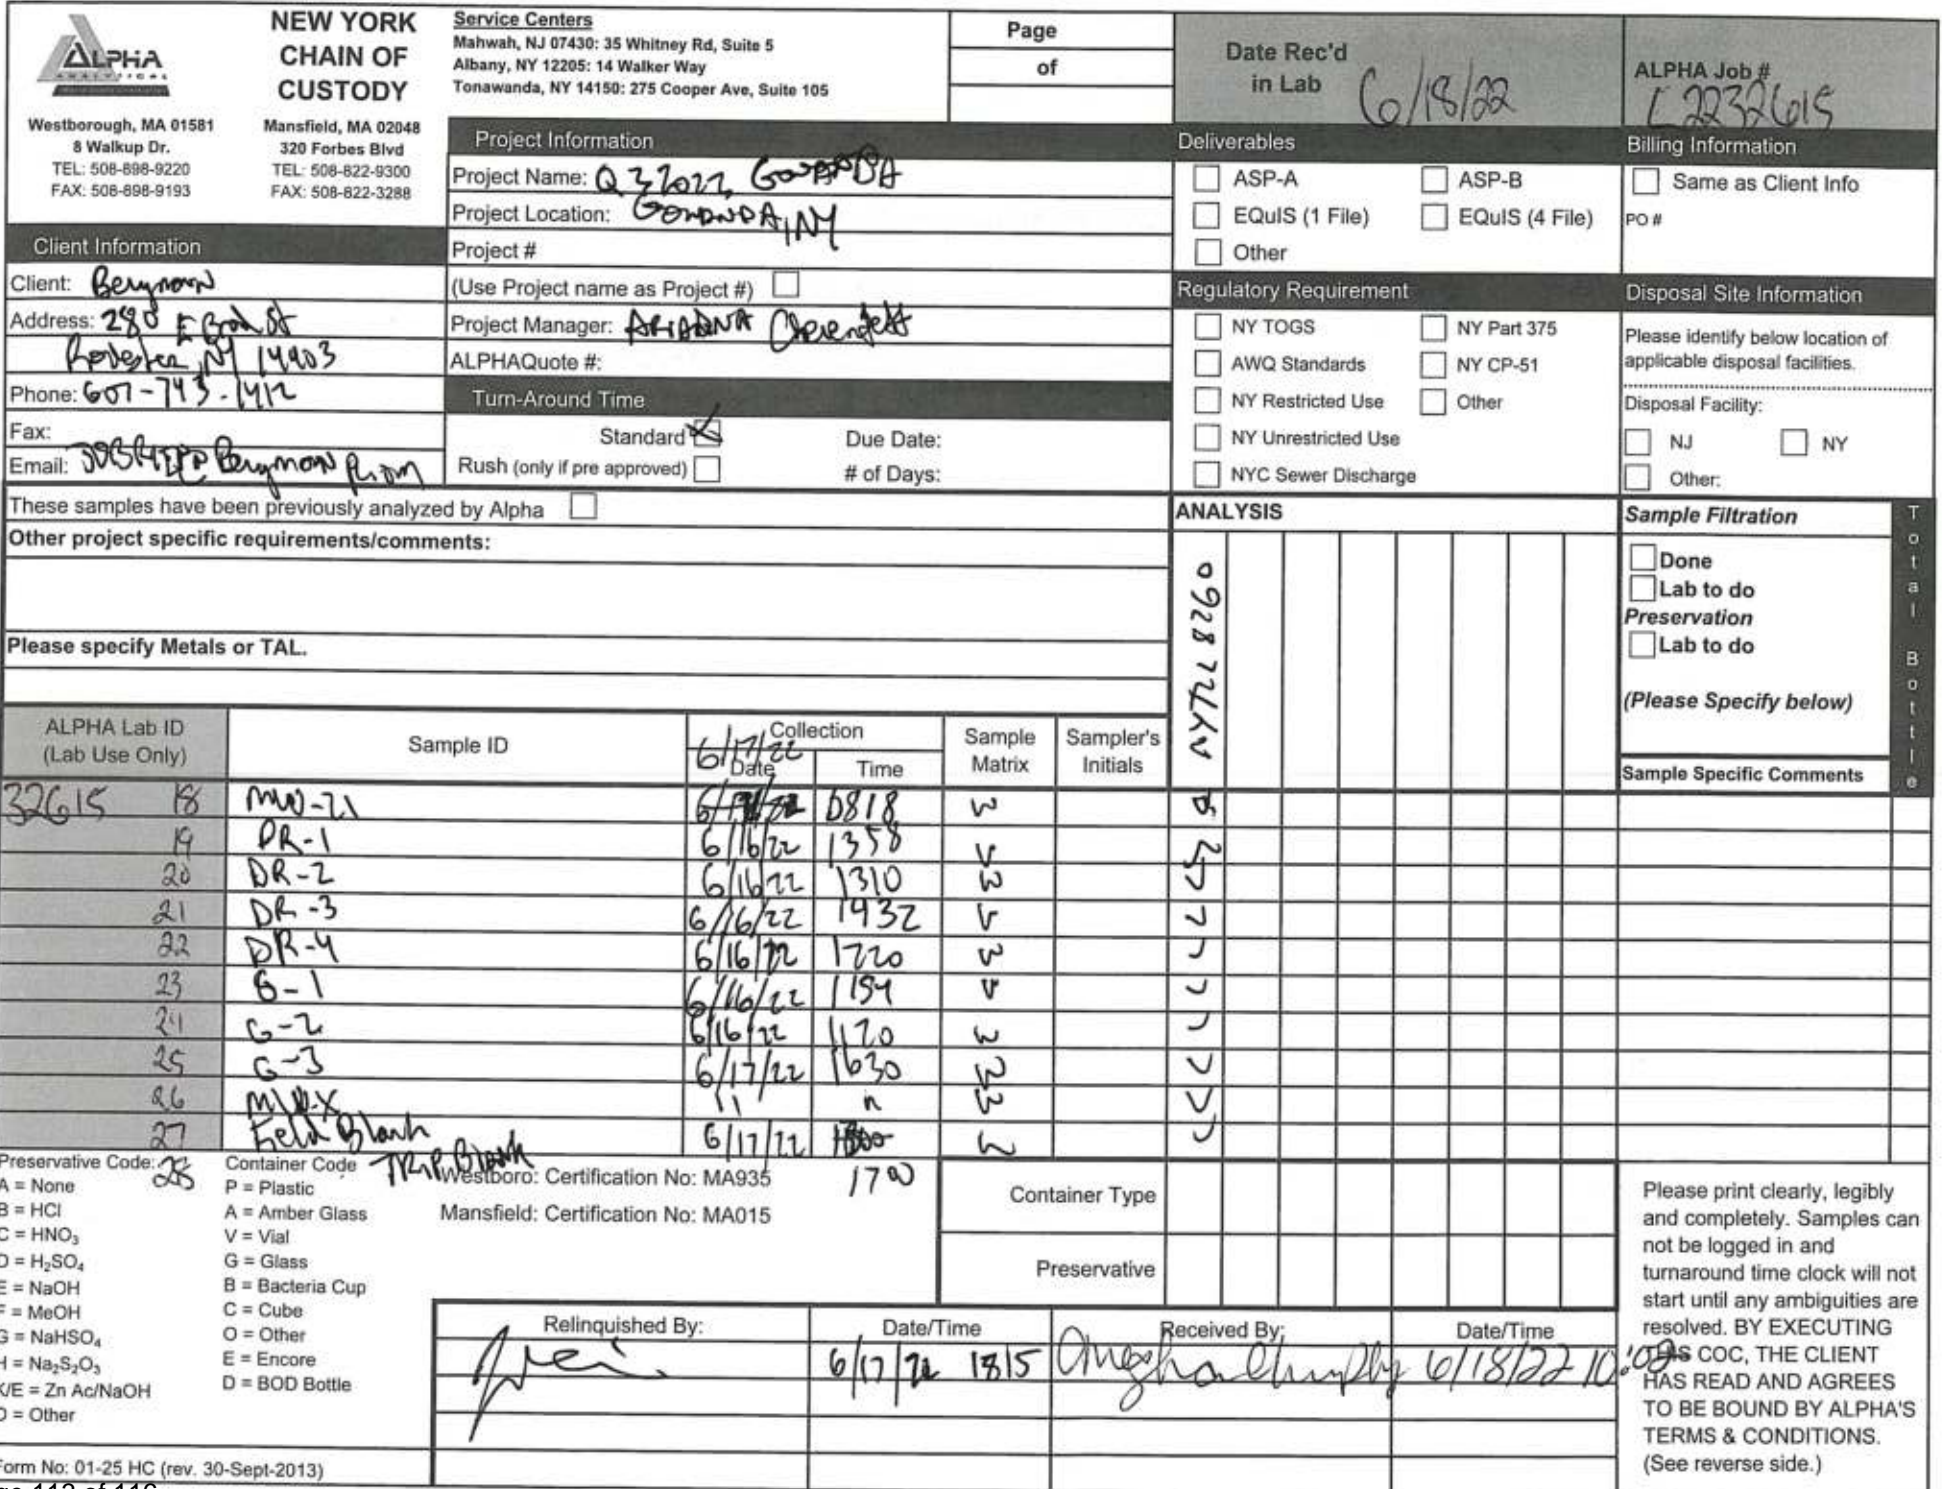 ALPHA
ANALYTICAL
NEW YORK
CHAIN OF
CUSTODY
Westborough, MA 01581
8 Walkup Dr.
TEL: 508-898-9220
FAX: 508-898-9193
Mansfield, MA 02048
320 Forbes Blvd
TEL: 508-822-9300
FAX: 508-822-3288
Service Centers
Mahwah, NJ 07430: 35 Whitney Rd, Suite 5
Albany, NY 12205: 14 Walker Way
Tonawanda, NY 14150: 275 Cooper Ave, Suite 105
Page
of
Date Rec'd
in Lab 6/18/22
ALPHA Job #
L2232615
Client Information
Client: Bergmann
Address: 280 E Broad St
NY
Phone: 607-743-1412
Fax:
Email:
Project Information
Project Name: Q3 2022
Project Location: NY
Project #
(Use Project name as Project #)
Project Manager: ARIADNA
ALPHAQuote #:
Turn-Around Time
Standard
Due Date:
Rush (only if pre approved)
# of Days:
Deliverables
ASP-A ASP-B
EQuIS (1 File) EQuIS (4 File)
Other
Regulatory Requirement
NY TOGS NY Part 375
AWQ Standards NY CP-51
NY Restricted Use Other
NY Unrestricted Use
NYC Sewer Discharge
Billing Information
Same as Client Info
PO #
Disposal Site Information
Please identify below location of
applicable disposal facilities.
Disposal Facility:
NJ NY
Other:
These samples have been previously analyzed by Alpha
Other project specific requirements/comments:
Please specify Metals or TAL.
ANALYSIS
Sample Filtration
Done
Lab to do
Preservation
Lab to do
(Please Specify below)
Sample Specific Comments
Total Bottle
ALPHA Lab ID
(Lab Use Only)
Sample ID
Collection
6/17/22
Date Time
Sample
Matrix
Sampler's
Initials
32615 18 MW-21 0818 W
19 DR-1 6/16/22 1358
20 DR-2 6/16/22 1310 W
21 DR-3 6/16/22 1432
22 DR-4 6/16/22 1220 W
23 G-1 6/16/22 1154
24 G-2 6/16/22 1120 W
25 G-3 6/17/22 1630 W
26 MW-X 11 11 W
27 Field Blank 6/17/22 W
28 TRIP Blank 1700
Preservative Code:
A = None
B = HCl
C = HNO₃
D = H₂SO₄
E = NaOH
F = MeOH
G = NaHSO₄
H = Na₂S₂O₃
K/E = Zn Ac/NaOH
O = Other
Container Code
P = Plastic
A = Amber Glass
V = Vial
G = Glass
B = Bacteria Cup
C = Cube
O = Other
E = Encore
D = BOD Bottle
Westboro: Certification No: MA935
Mansfield: Certification No: MA015
Container Type
Preservative
Relinquished By: Date/Time Received By: Date/Time
6/17/22 1815 6/18/22 10:02
Please print clearly, legibly
and completely. Samples can
not be logged in and
turnaround time clock will not
start until any ambiguities are
resolved. BY EXECUTING
THIS COC, THE CLIENT
HAS READ AND AGREES
TO BE BOUND BY ALPHA'S
TERMS & CONDITIONS.
(See reverse side.)
Form No: 01-25 HC (rev. 30-Sept-2013)